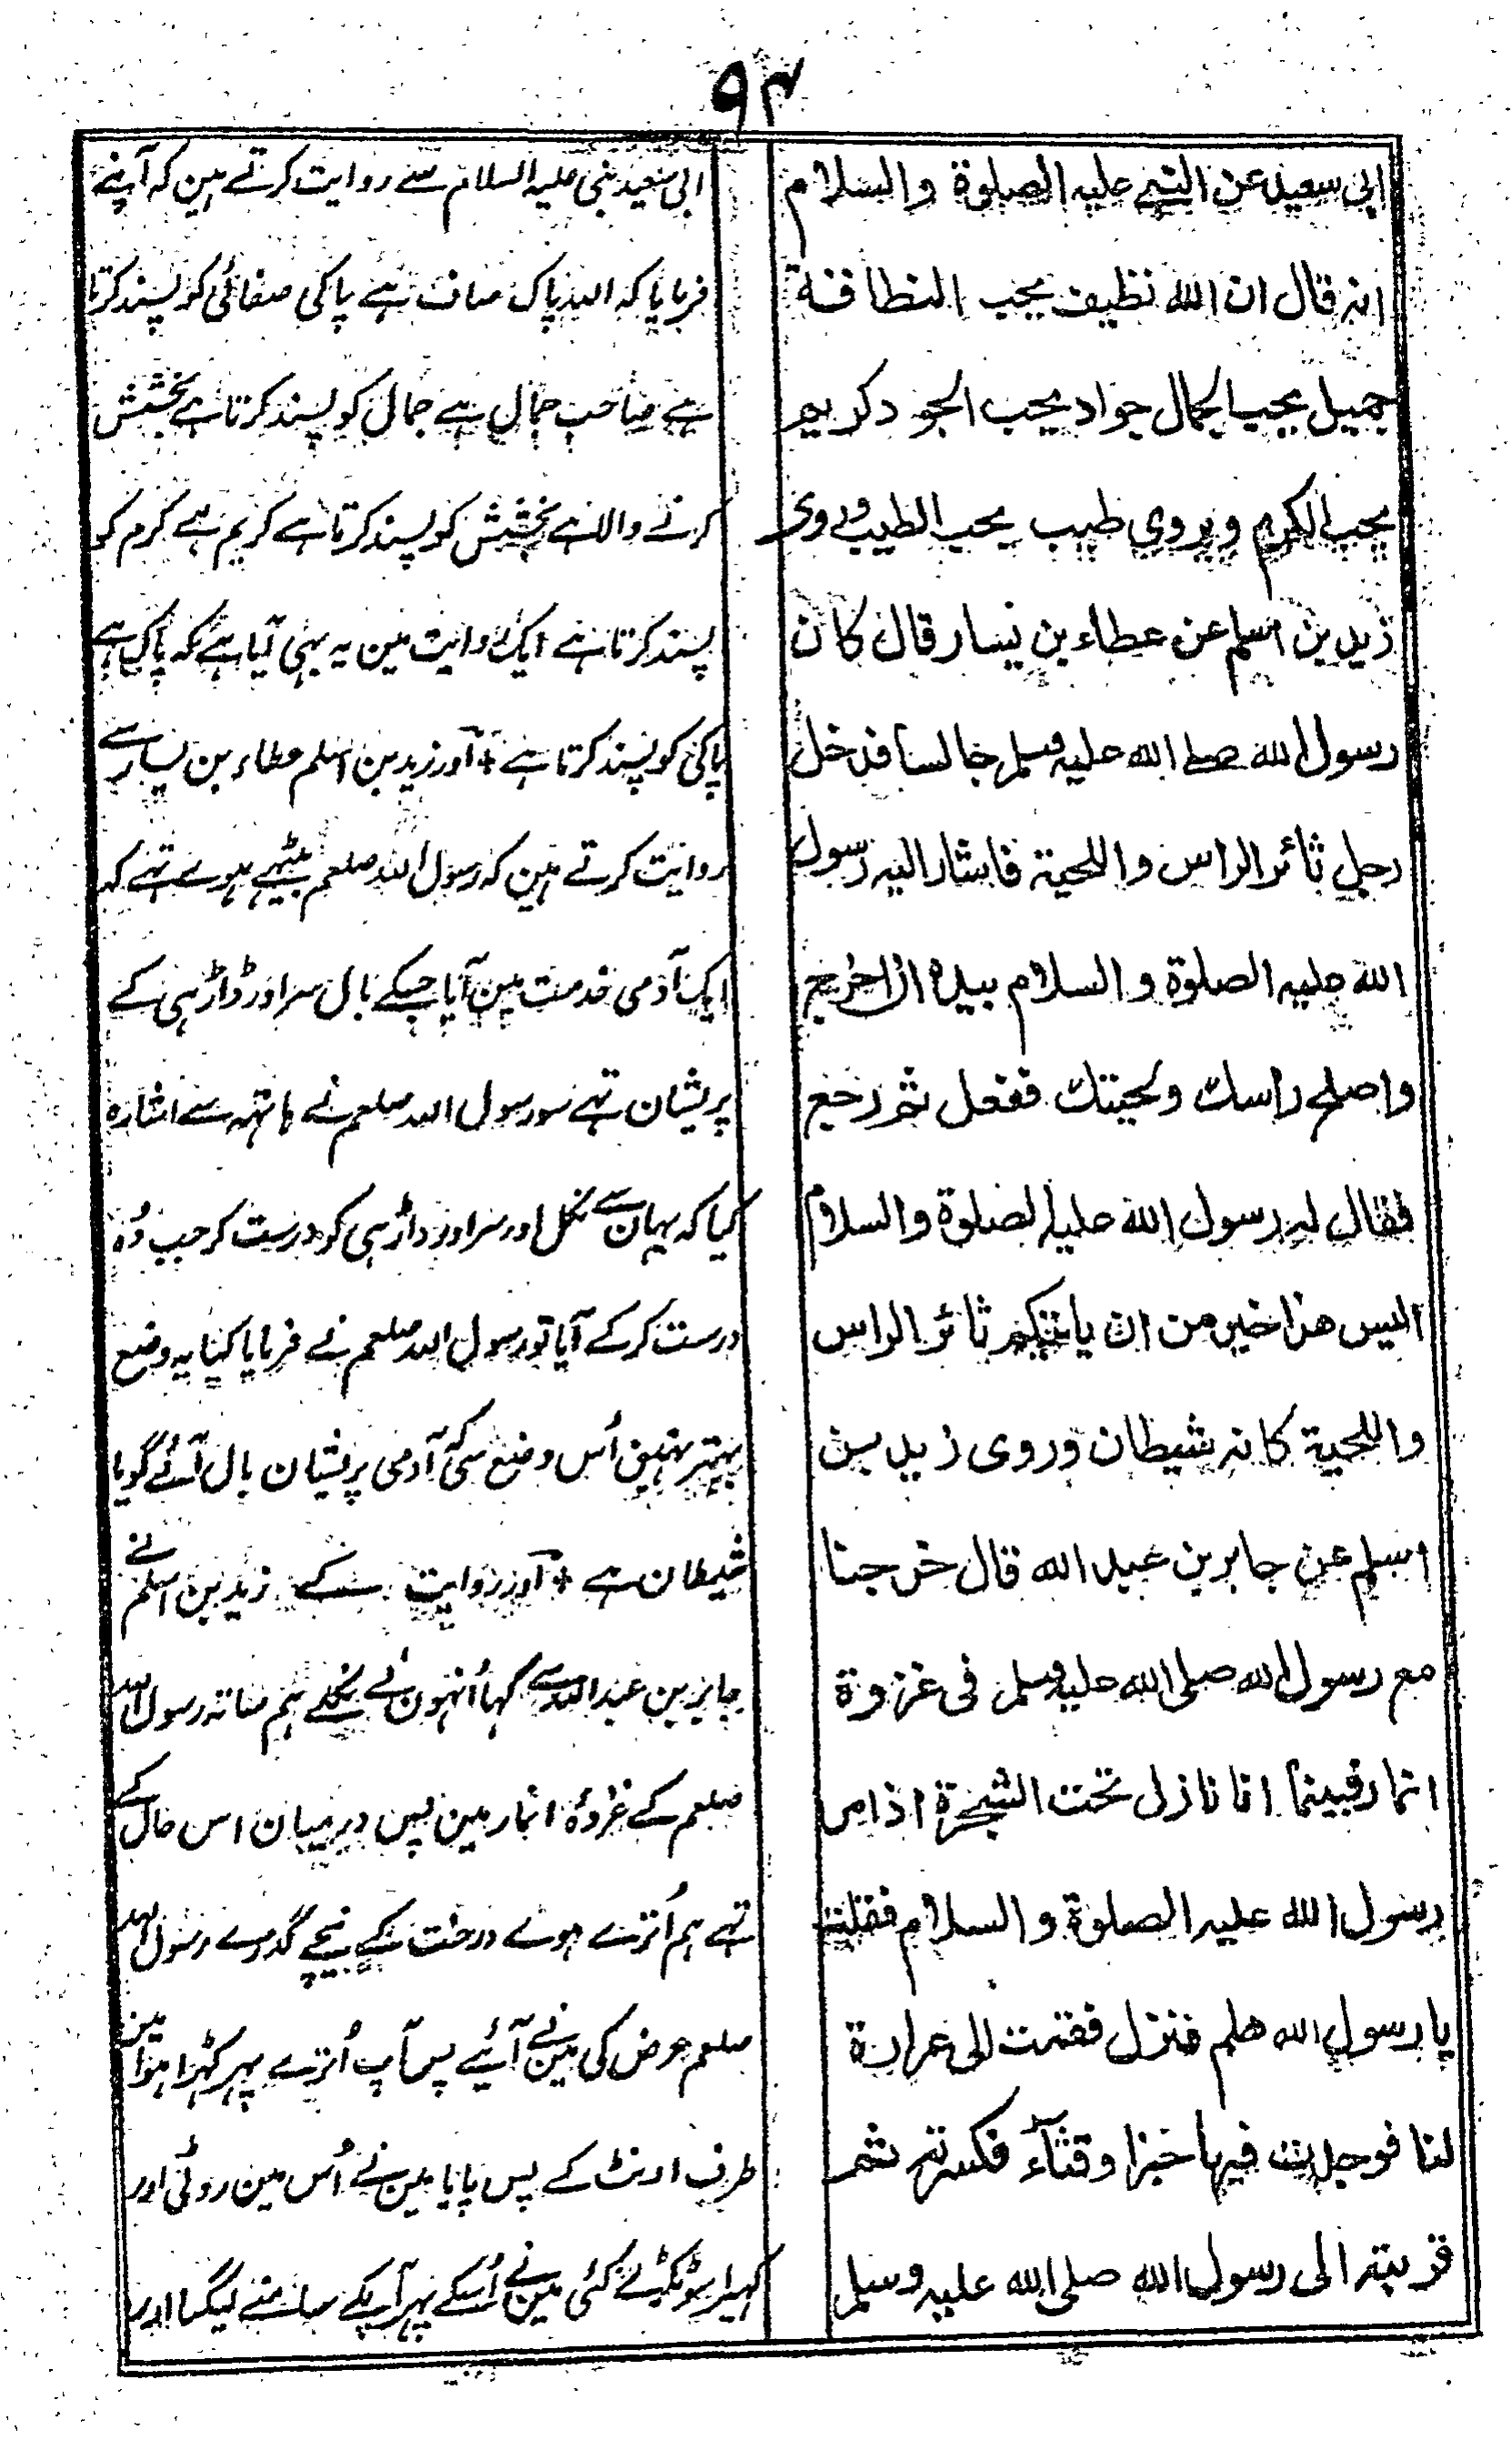 ۹۴
ابی سعید عن النبی علیه الصلوة والسلام
انه قال ان الله نظیف یحب النظافة
جمیل یحب الجمال جواد یحب الجود کریم
یحب الکرم ویروی طیب یحب الطیب وروی
زید بن اسلم عن عطاء بن یسار قال کان
رسول الله صلے الله علیه وسلم جالسا فدخل
رجل ثائر الراس واللحیة فاشار الیه رسول
الله علیه الصلوة والسلام بیده ان اخرج
واصلح راسک ولحیتک ففعل ثم رجع
فقال له رسول الله علیه الصلوة والسلام
الیس هذا خیر من ان یاتیکم ثائر الراس
واللحیة کانه شیطان وروی زید بن
اسلم عن جابر بن عبد الله قال خرجنا
مع رسول الله صلی الله علیه وسلم فی غزوة
انمار فبینما انا نازل تحت الشجرة اذا مر
رسول الله علیه الصلوة والسلام فقلت
یا رسول الله هلم فنزل فقمت الی غرارة
لنا فوجدت فیها خبزا وقثآء فکسرته ثم
قربته الی رسول الله صلی الله علیه وسلم
ابی سعید نبی علیه السلام سے روایت کرتے ہین کہ آپنے
فرمایا کہ اللہ پاک صاف ہے پاکی صفائی کو پسند کرتا
ہے صاحب جمال ہے جمال کو پسند کرتا ہے بخشش
کرنے والا ہے بخشش کو پسند کرتا ہے کریم ہے کرم کو
پسند کرتا ہے ایک روایت مین یہ بہی آیا ہے کہ پاک ہے
پاکی کو پسند کرتا ہے + اور زید بن اسلم عطاء بن یسار سے
روایت کرتے ہین کہ رسول اللہ صلعم بیٹہے ہوے تہے کہ
ایک آدمی خدمت مین آیا جسکے بال سر اور ڈاڑہی کے
پریشان تہے سو رسول اللہ صلعم نے ہاتہہ سے اشارہ
کیا کہ یہان سے نکل اور سر اور داڑہی کو درست کر جب وُہ
درست کر کے آیا تو رسول اللہ صلعم نے فرمایا کیا یہ وضع
بہتر نہین اُس وضع سے کہ آدمی پریشان بال آئے گویا
شیطان ہے + اور روایت کے زید بن اسلم نے
جابر بن عبد اللہ سے کہا اُنہون نے نکلے ہم ساتہ رسول اللہ
صلعم کے غزوۂ انمار مین پس درمیان اس حال کے
تہے ہم اُترے ہوے درخت کے نیچے گدرے رسول اللہ
صلعم عرض کی مین نے آئیے پس آپ اُترے پہر کہڑا ہوا مین
طرف اونٹ کے پس پایا مین نے اُس مین روٹی اور
کہیرا سو ٹکڑے کئی مین نے اُسکے پہر آپکے سامنے لیگیا اور